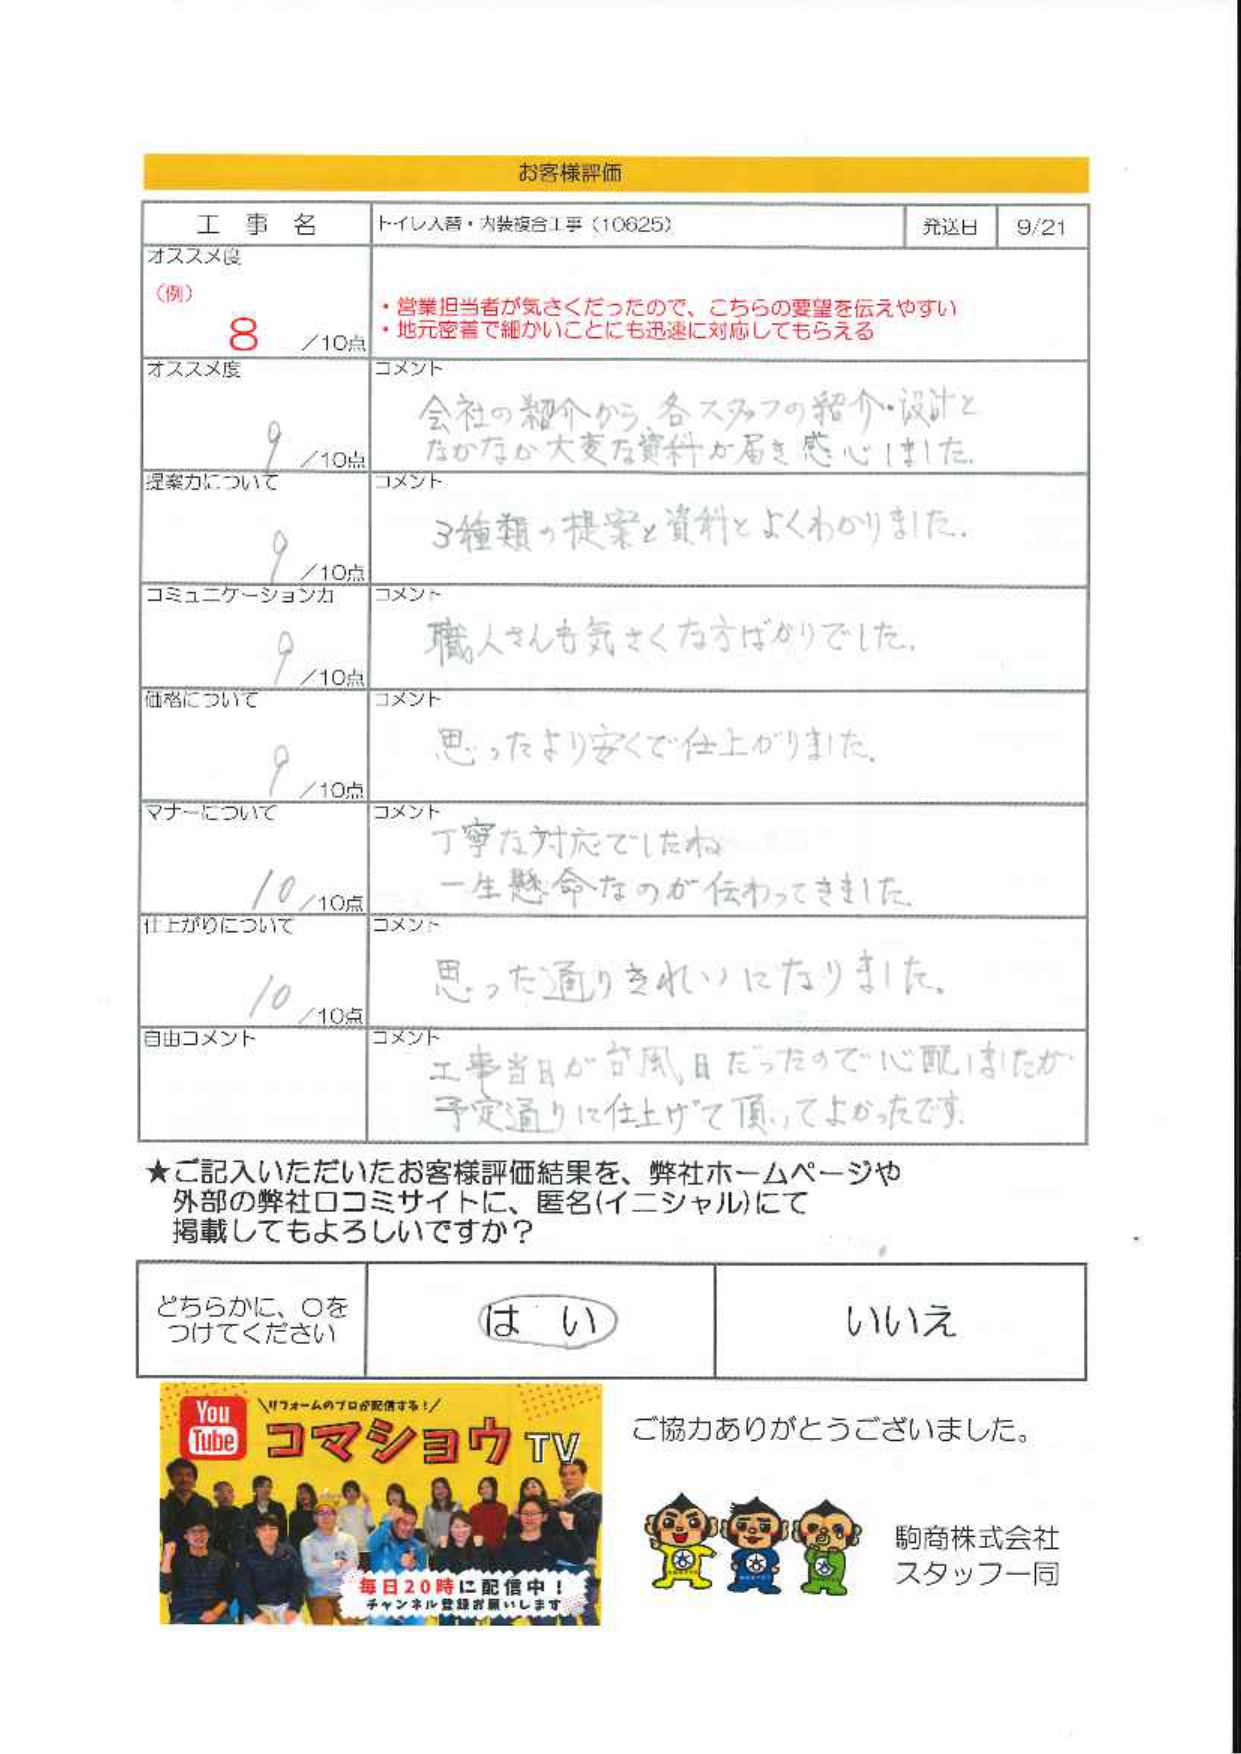 お客様評価
工 事 名 トイレ入替・内装複合工事（10625） 発送日 9/21
オススメ度
（例）
8 ／10点
・営業担当者が気さくだったので、こちらの要望を伝えやすい
・地元密着で細かいことにも迅速に対応してもらえる
オススメ度
9 ／10点
コメント
会社の紹介から、各スタッフの紹介・設計と
なかなか大変な資料が届き感心しました。
提案力について
9 ／10点
コメント
3種類の提案と資料とよくわかりました。
コミュニケーション力
9 ／10点
コメント
職人さんも気さくな方ばかりでした。
価格について
9 ／10点
コメント
思ったより安くで仕上がりました。
マナーについて
10 ／10点
コメント
丁寧な対応でしたね
一生懸命なのが伝わってきました。
仕上がりについて
10 ／10点
コメント
思った通りきれいになりました。
自由コメント
コメント
工事当日が台風日だったので心配しましたが
予定通りに仕上げて頂いてよかったです。
★ご記入いただいたお客様評価結果を、弊社ホームページや
外部の弊社口コミサイトに、匿名(イニシャル)にて
掲載してもよろしいですか？
どちらかに、○を
つけてください
はい
いいえ
You
Tube
＼リフォームのプロが配信する！／
コマショウTV
毎日20時に配信中！
チャンネル登録お願いします
ご協力ありがとうございました。
駒商株式会社
スタッフ一同